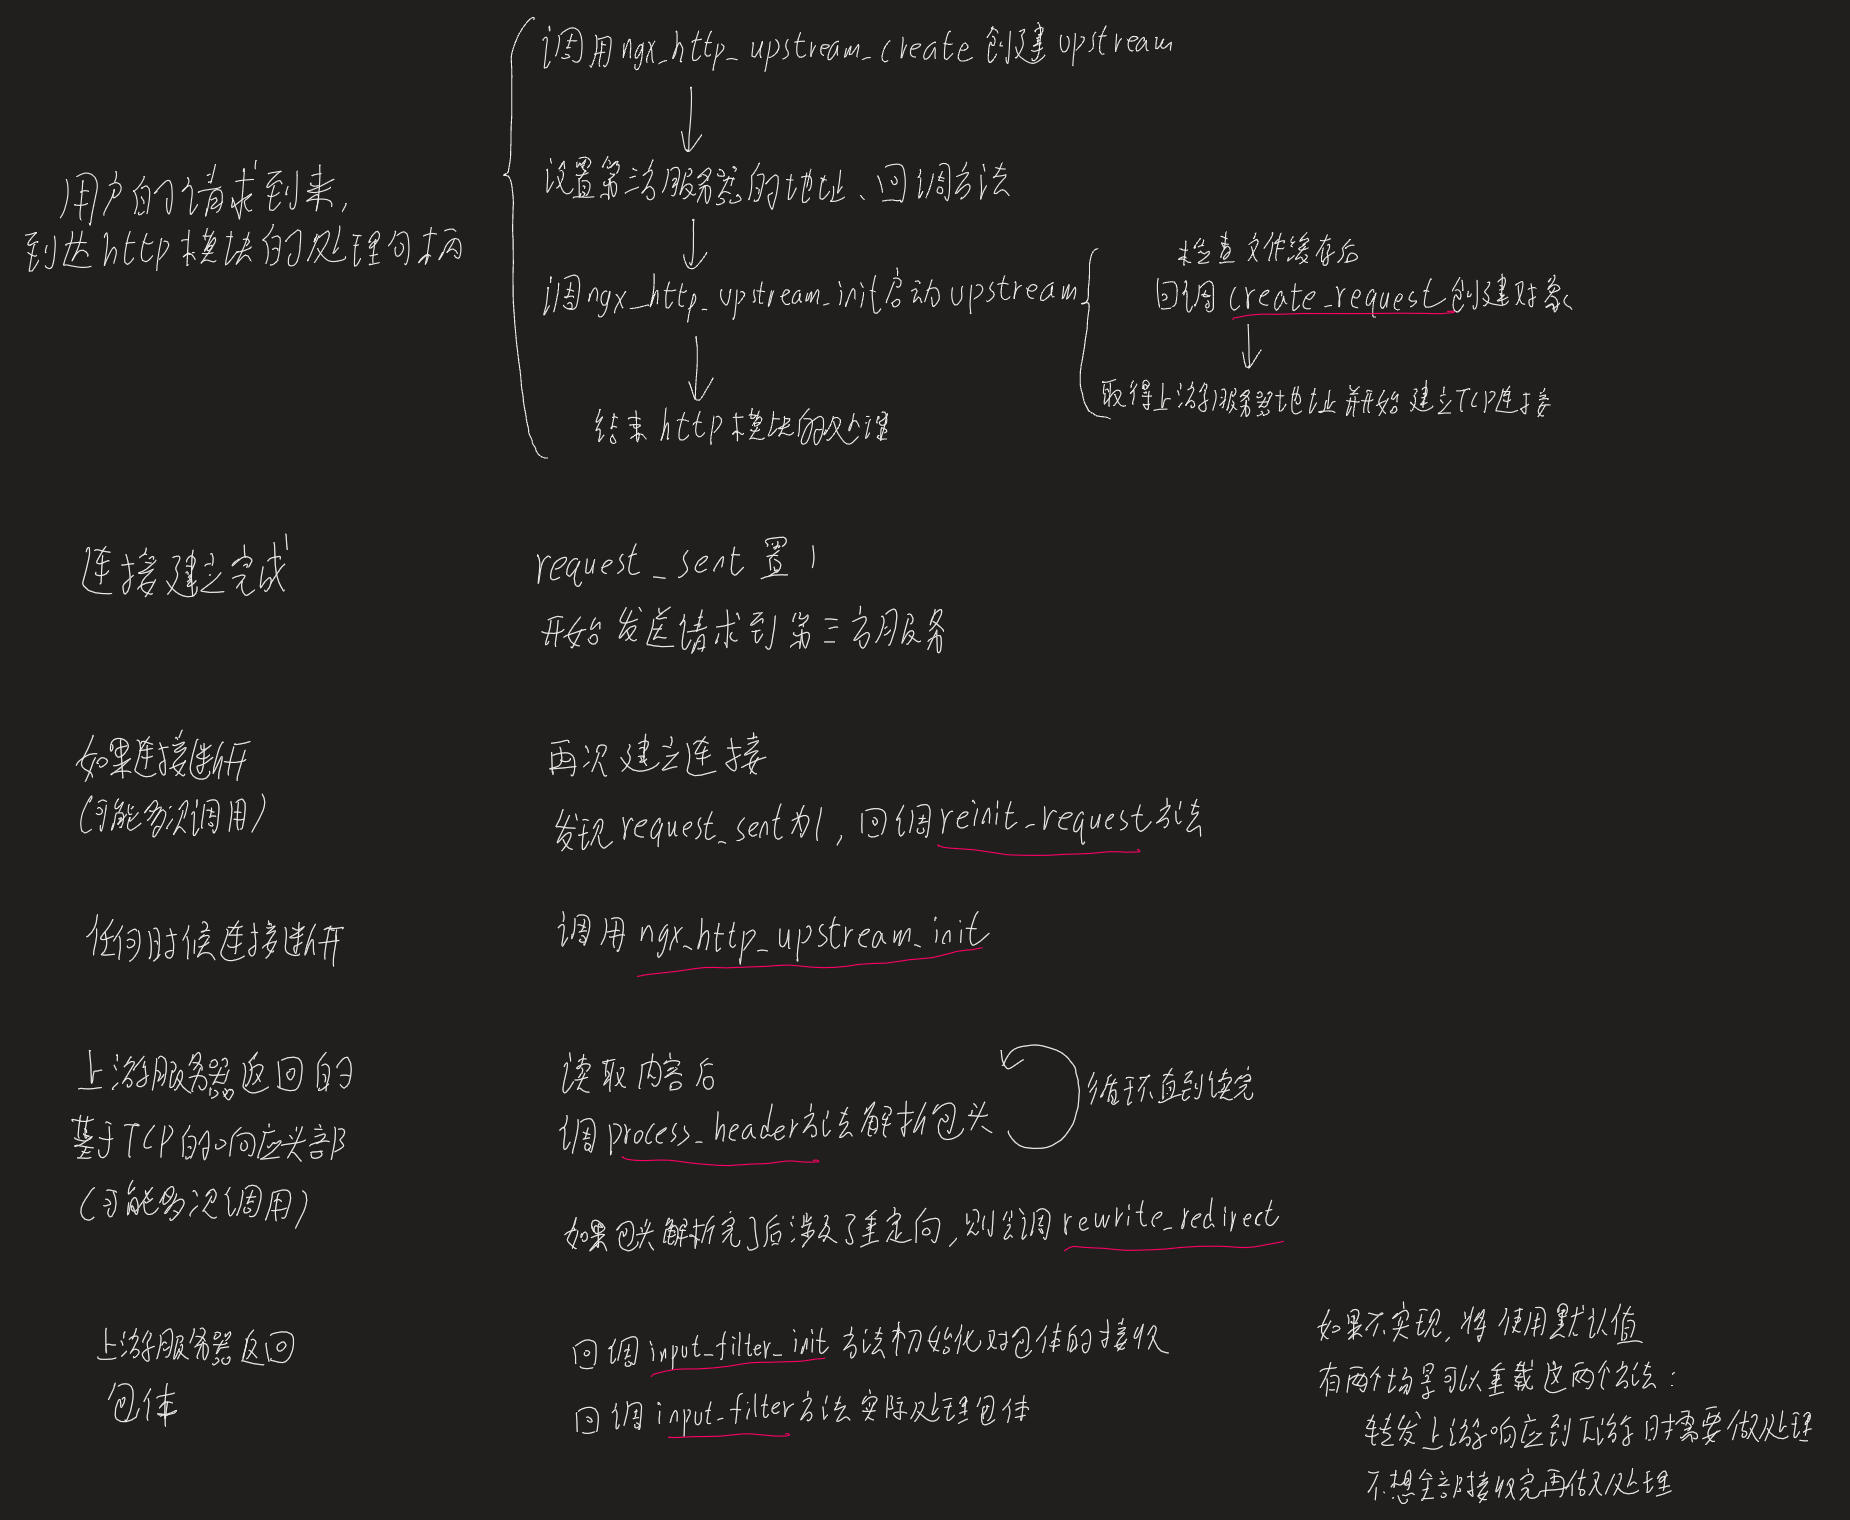 用户的请求到来,
到达http模块的处理句柄
调用ngx_http_upstream_create创建upstream
设置第三方服务器的地址、回调方法
调ngx_http_upstream_init启动upstream
结束http模块的处理
检查文件缓存后
回调create_request创建对象
取得上游服务器地址并开始建立TCP连接
连接建立完成
request_sent置1
开始发送请求到第三方服务
如果连接断开
(可能多次调用)
再次建立连接
发现request_sent为1,回调reinit_request方法
任何时候连接断开
调用ngx_http_upstream_init
上游服务器返回的
基于TCP的响应头部
(可能多次调用)
读取内容后
调process_header方法解析包头
循环直到读完
如果包头解析完了后涉及了重定向,则会调rewrite_redirect
上游服务器返回
包体
回调input_filter_init方法初始化对包体的接收
回调input_filter方法实际处理包体
如果不实现,将使用默认值
有两个场景可以重载这两个方法:
转发上游响应到下游时需要做处理
不想全部接收完再做处理